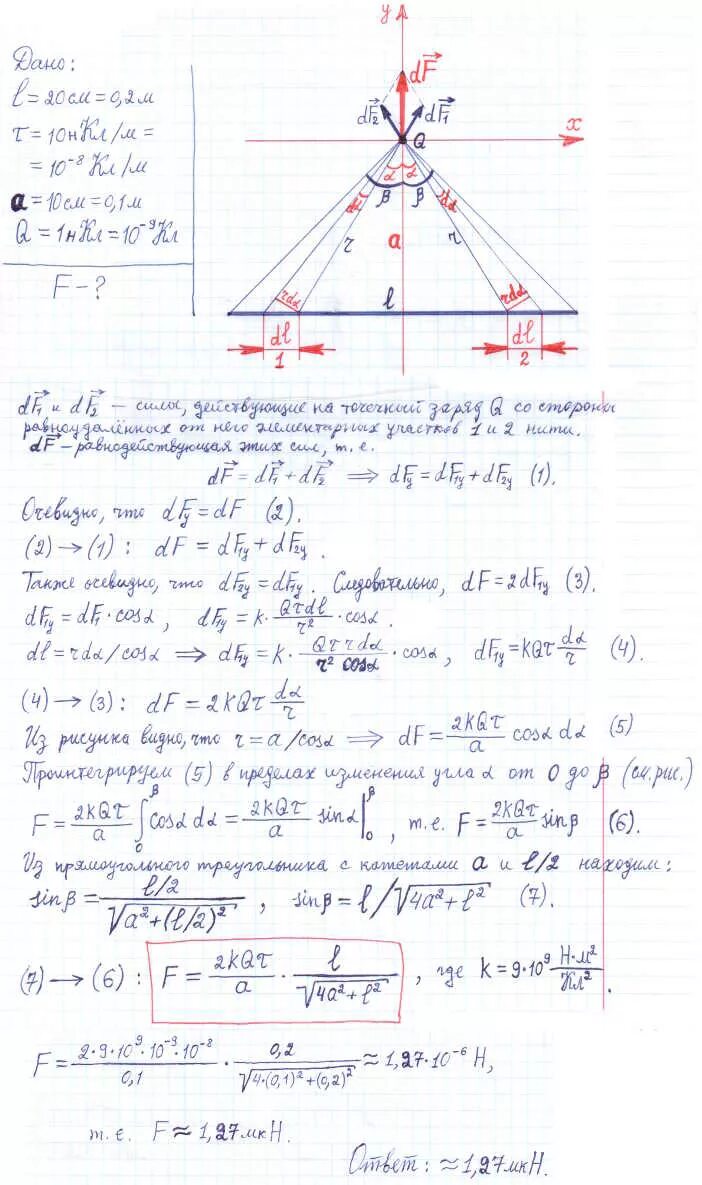 Дано:
l = 20 см = 0,2 м
τ = 10 нКл/м =
= 10⁻⁸ Кл/м
a = 10 см = 0,1 м
Q = 1 нКл = 10⁻⁹ Кл
F - ?
y
dF⃗
dF⃗₂ dF⃗₁
Q x
α α
dα β β dα
r a r
rdα l rdα
dl dl
1 2
dF⃗₁ и dF⃗₂ – силы, действующие на точечный заряд Q со стороны
равноудалённых от него элементарных участков 1 и 2 нити.
dF⃗ – равнодействующая этих сил, т.е.
dF⃗ = dF⃗₁ + dF⃗₂ ⟹ dFy = dF₁y + dF₂y (1).
Очевидно, что dFy = dF (2).
(2) → (1) : dF = dF₁y + dF₂y.
Также очевидно, что dF₂y = dF₁y. Следовательно, dF = 2dF₁y (3).
dF₁y = dF₁ · cosα, dF₁y = k · Qτdl/r² · cosα.
dl = rdα/cosα ⟹ dF₁y = k · Qτrdα/(r² cosα) · cosα, dF₁y = kQτ dα/r (4).
(4) → (3) : dF = 2kQτ dα/r
Из рисунка видно, что r = a/cosα ⟹ dF = 2kQτ/a cosα dα (5)
Проинтегрируем (5) в пределах изменения угла α от 0 до β (см. рис.)
F = 2kQτ/a ∫₀^β cosα dα = 2kQτ/a sinα|₀^β, т.е. F = 2kQτ/a sinβ (6).
Из прямоугольного треугольника с катетами a и l/2 находим:
sinβ = (l/2)/√(a² + (l/2)²), sinβ = l/√(4a² + l²) (7).
(7) → (6) : F = 2kQτ/a · l/√(4a² + l²), где k = 9·10⁹ Н·м²/Кл².
F = (2·9·10⁹·10⁻⁹·10⁻⁸)/0,1 · 0,2/√(4·(0,1)² + (0,2)²) ≈ 1,27·10⁻⁶ Н,
т.е. F ≈ 1,27 мкН.
Ответ: ≈ 1,27 мкН.